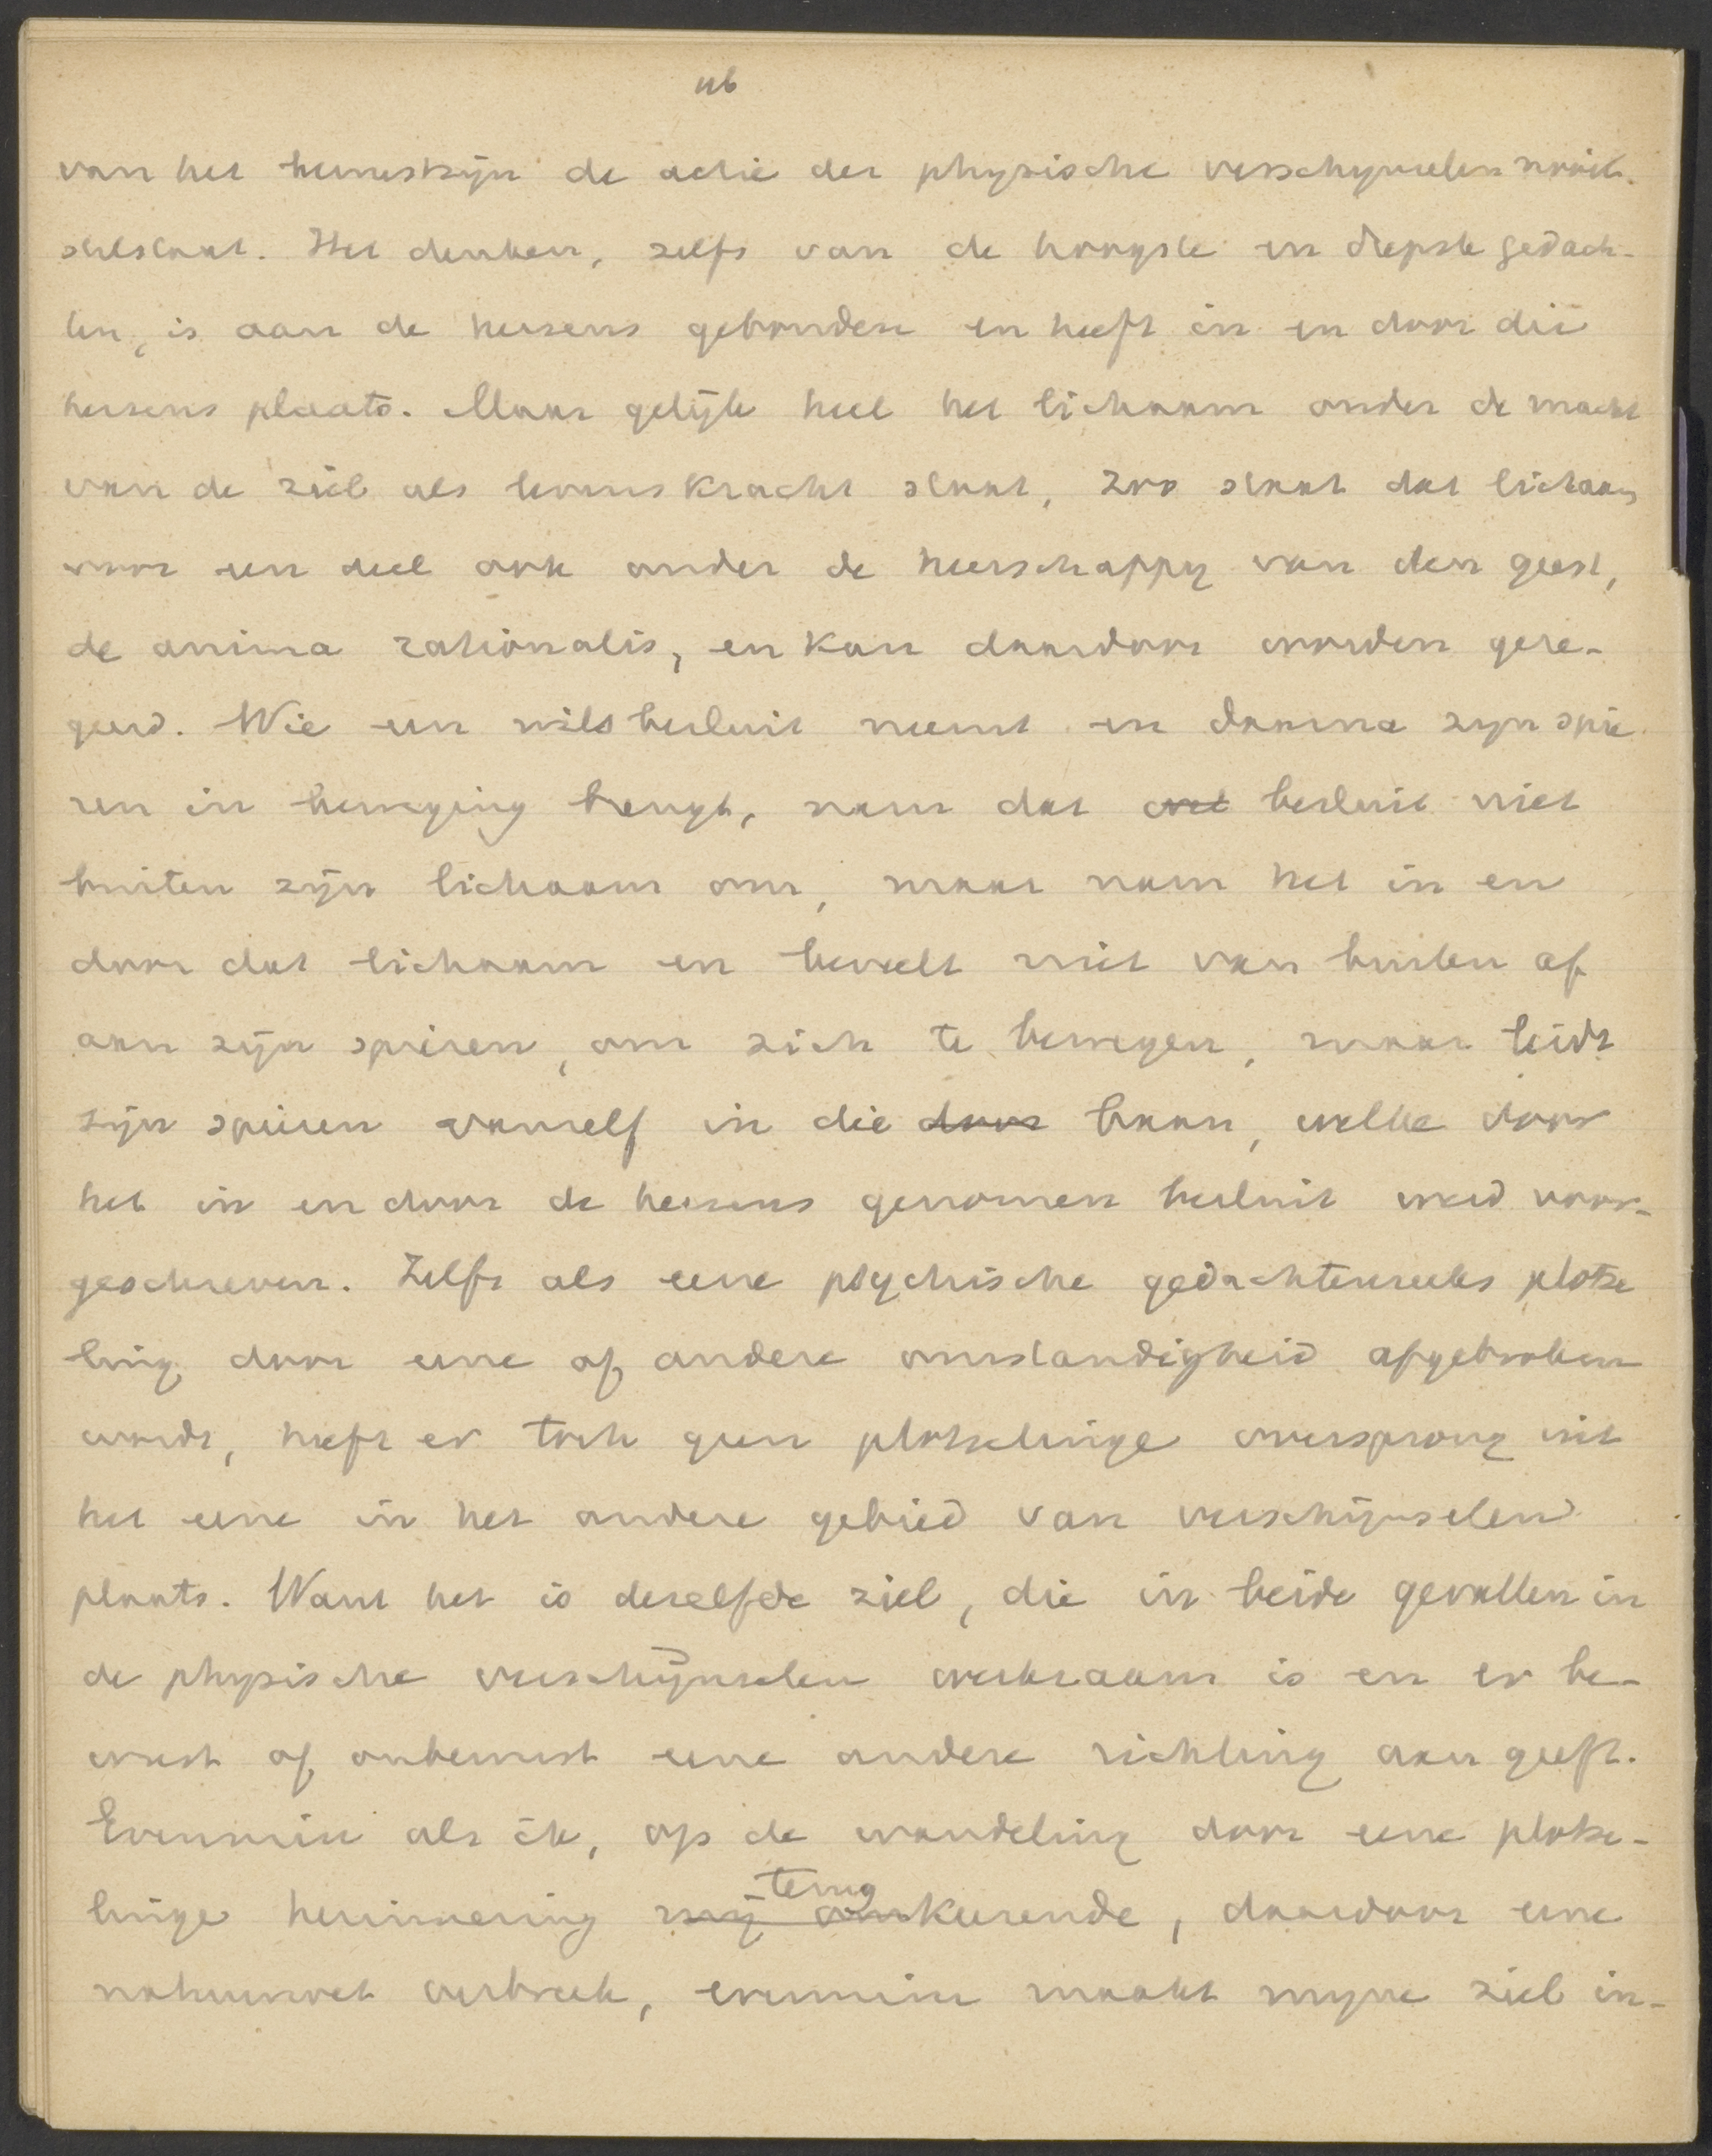 116
van het bewustzijn de actie der physische verschynselen nooit
stilstaat. Het denken, zelfs van de hoogste en diepste gedach-
ten, is aan de hersens gebonden en heeft in en door die
hersens plaats. Maar gelijk heel het lichaam onder de macht
van de ziel als levenskracht staat, zoo staat dat lichaam
voor een deel ook onder de heerschappy van den geest,
de anima rationalis, en kan daardoor worden gere-
geerd. Wie een wilsbesluit neemt en daarna zyn spie
ren in beweging brengt, nam dat besluit niet
buiten zijn lichaam om, maar nam het in en
door dat lichaam en beveelt niet van buiten af
aan zijn spieren, om zich te bewegen, maar leidt
zijn spieren vanzelf in die door baan, welke door
het in en door de hersens genomen besluit werd voor-
geschreven. Zelfs als eene psychische gedachtenreeks plotse
ling door eene of andere omstandigheid afgebroken
wordt, heeft er toch geen plotselinge oversprong uit
het eene in het andere gebied van verschijnselen
plaats. Want het is dezelfde ziel, die in beide gevallen in
de physische verschijnselen werkzaam is en er be-
wust of onbewust eene andere richting aan geeft.
Evenmin als ik, op de wandeling door eene plotse-
linge herinnering mij om terugkeerende, daardoor eene
natuurwet verbreek, evenmin maakt myne ziel in-